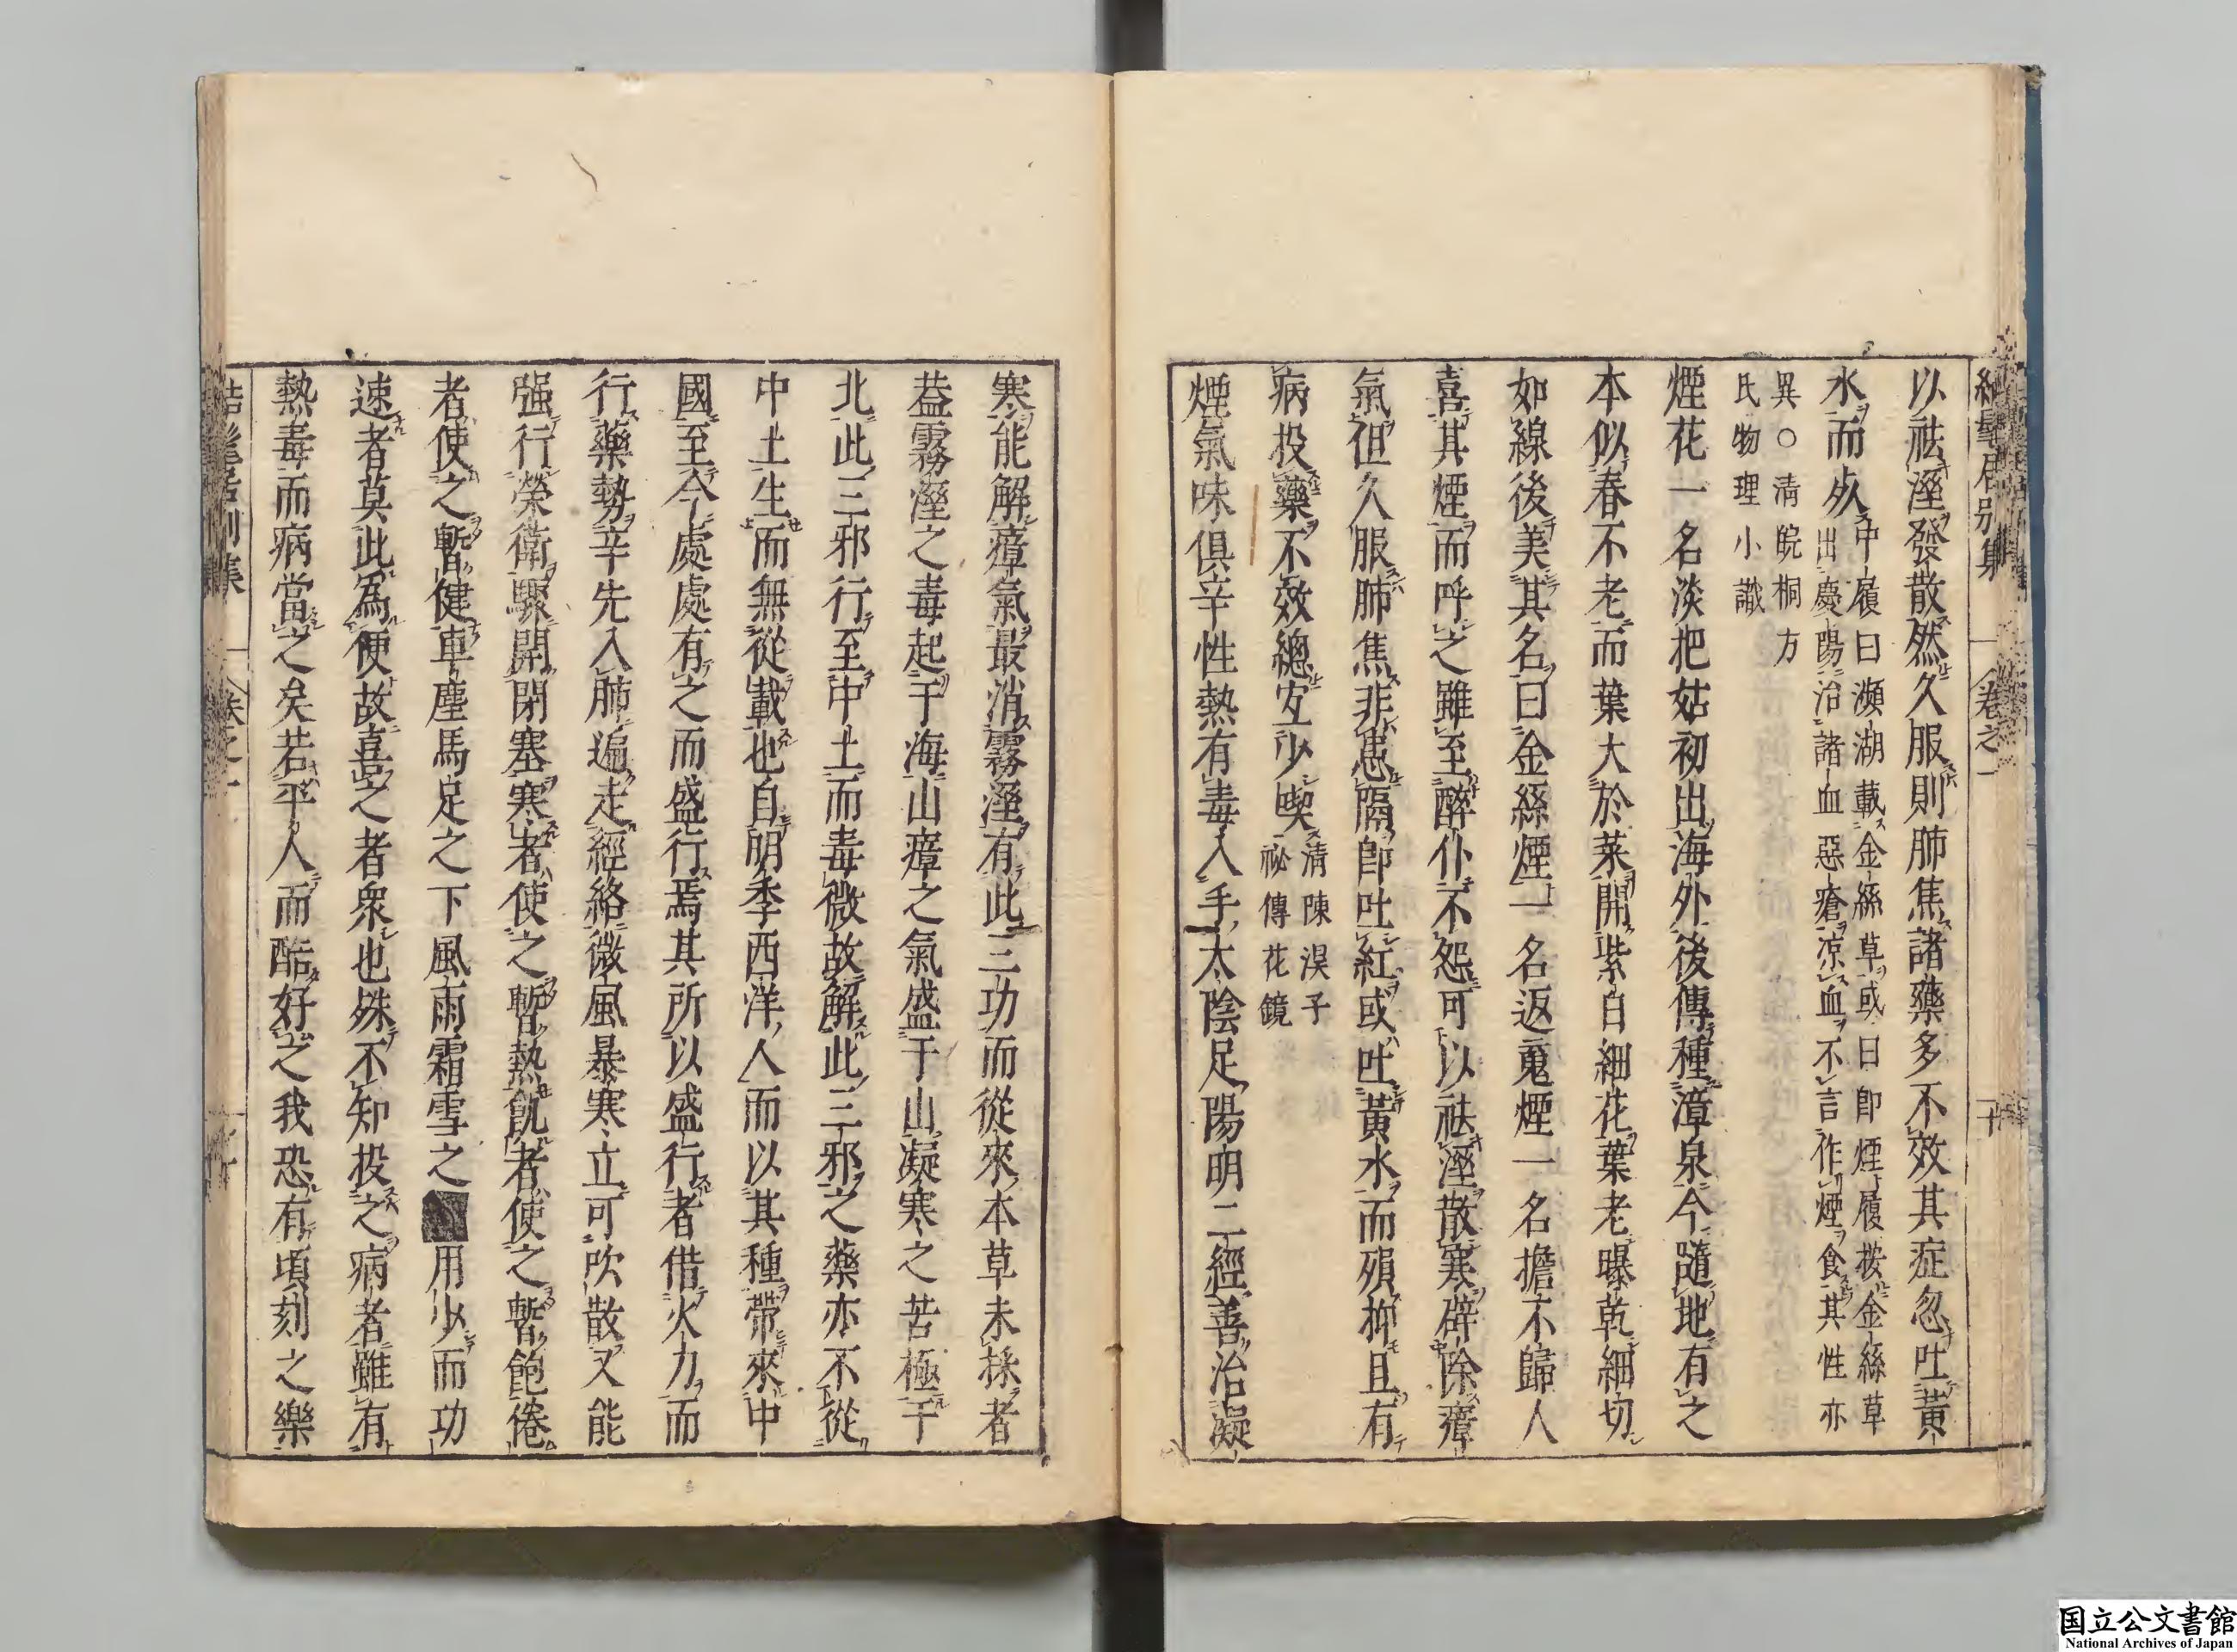 結髦居別集 卷之一 十
以祛溼發散然久服則肺焦諸藥多不效其症忽吐黃
水而死中履曰瀕湖載金絲草或曰即煙履按金絲草
出慶陽治諸血惡瘡凉血不言作煙食其性亦
異○清皖桐方
氏物理小識
煙花一名淡把姑初出海外後傳種漳泉今隨地有之
本似春不老而葉大於菜開紫白細花葉老曝乾細切
如線後美其名曰金絲煙一名返魂煙一名擔不歸人
喜其煙而呼之雖至醉仆不怨可以祛溼散寒辟除瘴
氣但久服肺焦非患膈即吐紅或吐黃水而殞抑且有
病投藥不效總宜少喫清陳淏子
祕傳花鏡
煙氣味俱辛性熱有毒入手太陰足陽明二經善治凝
寒能解瘴氣最消霧溼有此三功而從來本草未採者
葢霧溼之毒起于海山瘴之氣盛于山凝寒之苦極于
北此三邪行至中土而毒微故解此三邪之藥亦不從
中土生而無從載也自明季西洋人而以其種帶來中
國至今處處有之而盛行焉其所以盛行者借火力而
行藥勢辛先入肺遍走經絡微風暴寒立可吹散又能
强行榮衛驟開閉塞寒者使之暫熱飢者使之暫飽倦
者使之暫健車塵馬足之下風雨霜雪之
用少而功
速者莫此為便故喜之者衆也殊不知投之病者雖有
熱毒而病當之矣若平人而酷好之我恐有頃刻之樂
卷之一
国立公文書館
National Archives of Japan